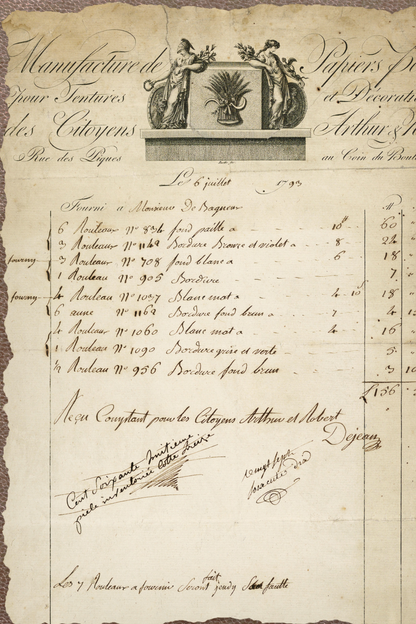 Manufacture de Papiers
pour Tentures et Décorati
des Citoyens Arthur &
Rue des Piques au Coin du Boul
Le 6 juillet 1793
Fourni à Monsieur De Bagneux
6 Rouleaux N° 834 fond paille a 10 60
3 Rouleaux N° 1142 Bordure Brune et violet a 8 24
fourny 3 Rouleaux N° 708 fond blanc a 6 18
1 Rouleau N° 905 Bordure 7
fourny 4 Rouleaux N° 1037 Blanc mat a 4 10 18
6 aune N° 1162 Bordure fond brun a 7 4
4 Rouleaux N° 1060 Blanc mat a 4 16
1 Rouleau N° 1090 Bordure grise et verte 5
½ Rouleau N° 956 Bordure fond brun 3 10
156
Reçu Comptant pour les Citoyens Arthur et Robert
Dejean
Cent Soixante huitieme
piece inventoriée
vingt sept
Les 7 Rouleaux a fournir Seront fait jeudy